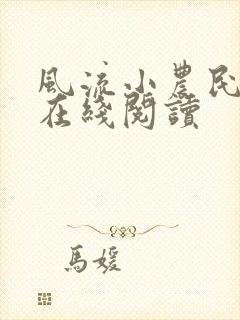 風流小農民
在綫閱讀
馬媛